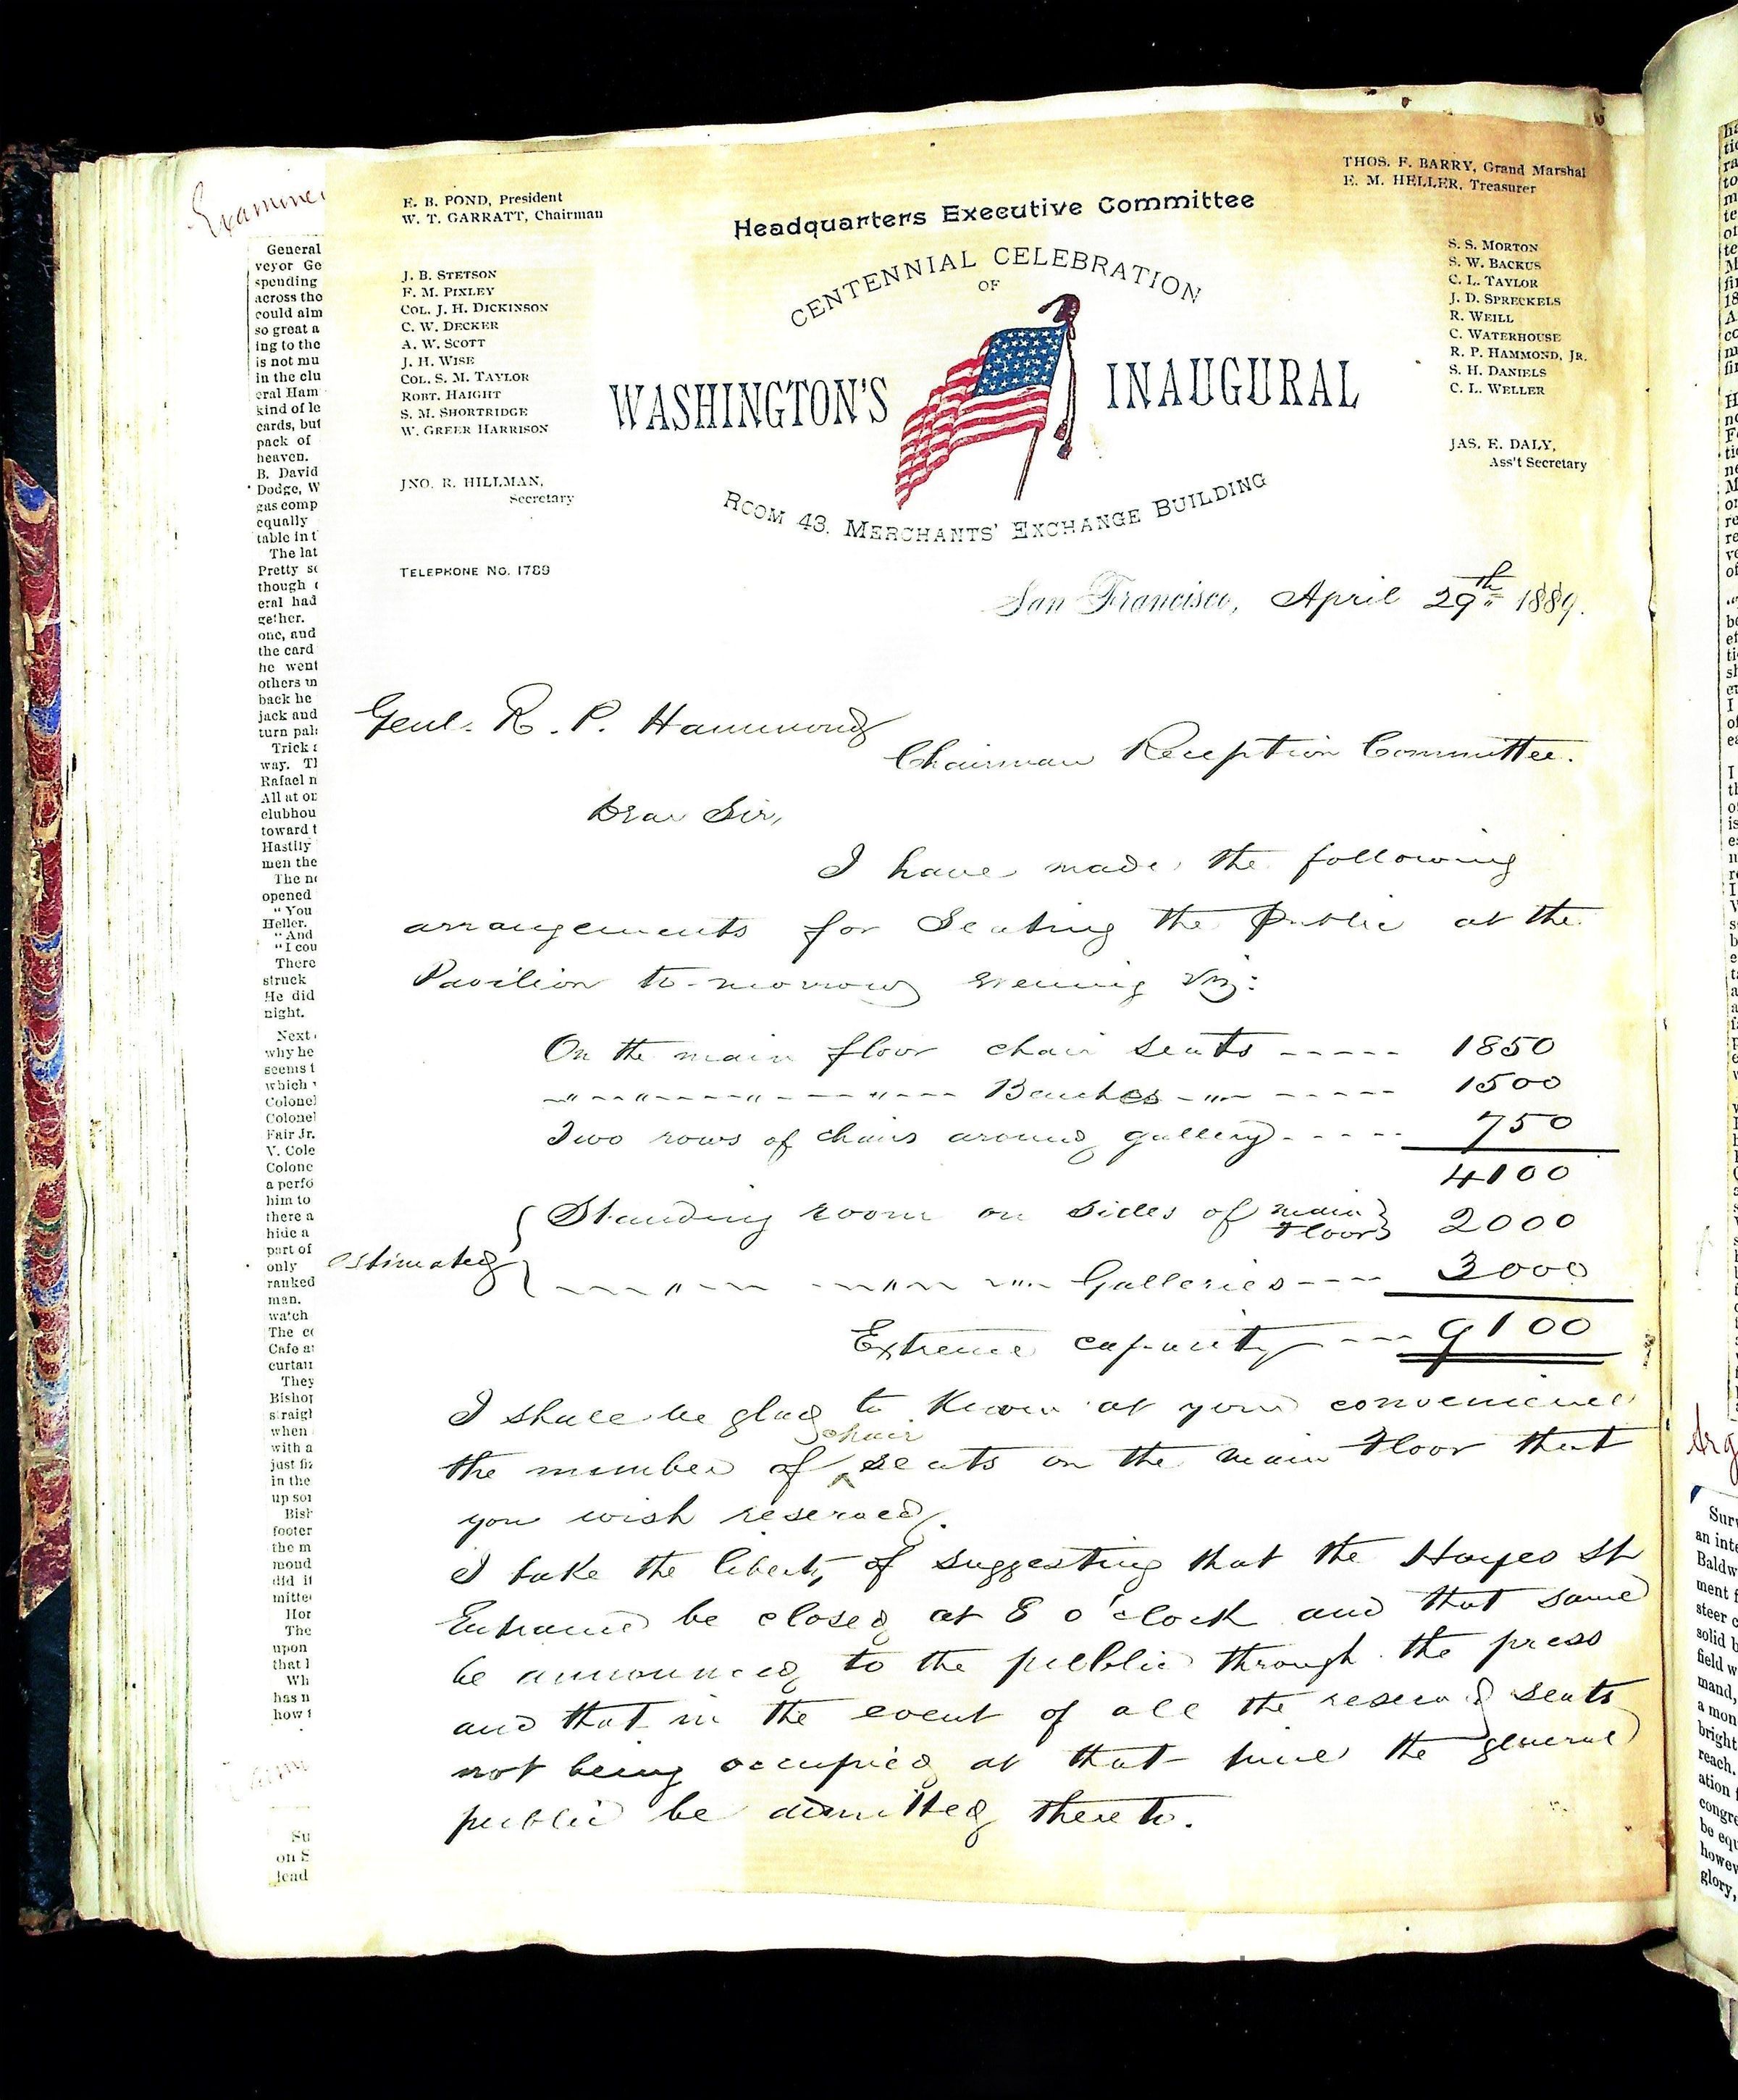 Examiner
E. B. POND, President
W. T. GARRATT, Chairman
J. B. STETSON
F. M. PIXLEY
COL. J. H. DICKINSON
C. W. DECKER
A. W. SCOTT
J. H. WISE
COL. S. M. TAYLOR
ROBT. HAIGHT
S. M. SHORTRIDGE
W. GREER HARRISON
JNO. R. HILLMAN,
Secretary
TELEPHONE NO. 1789
Headquarters Executive Committee
CENTENNIAL CELEBRATION
OF
WASHINGTON'S INAUGURAL
ROOM 43, MERCHANTS' EXCHANGE BUILDING
THOS. F. BARRY, Grand Marshal
E. M. HELLER, Treasurer
S. S. MORTON
S. W. BACKUS
C. L. TAYLOR
J. D. SPRECKELS
R. WEILL
C. WATERHOUSE
R. P. HAMMOND, JR.
S. H. DANIELS
C. L. WELLER
JAS. E. DALY,
Ass't Secretary
San Francisco, April 29th 1889.
Genl. R. P. Hammond
Chairman Reception Committee.
Dear Sir,
I have made the following
arrangements for Seating the Public at the
Pavilion to-morrow evening viz:
On the main floor chair seats ----- 1850
" " " " Benches " ----- 1500
Two rows of chairs around gallery ----- 750
4100
estimated { Standing room on sides of main floor } 2000
" " " Galleries ---- 3000
Extreme capacity ---- 9100
I shall be glad to know at your convenience
the number of ^chair seats on the main floor that
you wish reserved.
I take the liberty of suggesting that the Hayes St
Entrance be closed at 8 o'clock and that same
be announced to the public through the press
and that in the event of all the reserved seats
not being occupied at that time the general
public be admitted thereto.
General
veyor Ge
spending
across the
could alm
so great a
ing to the
is not mu
in the clu
eral Ham
kind of le
cards, but
pack of
heaven.
B. David
Dodge, W
gas comp
equally
table in t
The lat
Pretty s
though
eral had
gether.
one, and
the card
he went
others in
back he
jack and
turn pal
Trick
way. Tl
Rafael n
All at on
clubhou
toward t
Hastily
men the
The n
opened
"You
Heller.
"And
"I cou
There
struck
He did
night.
Next
why he
seems t
which
Colonel
Colonel
Fair Jr.
V. Cole
Colone
a perfo
him to
there a
hide a
part of
only
ranked
man.
watch
The c
Cafe a
curtain
They
Bishop
straigh
when
with a
just fi
in the
up so
Bish
footer
the m
mond
did i
mitte
Hor
The
upon
that l
Wh
has n
how
Su
on S
lead
Arg
Surv
an inte
Baldw
ment f
steer c
solid b
field w
mand,
a mon
bright
reach.
ation
congre
be equ
howev
glory,